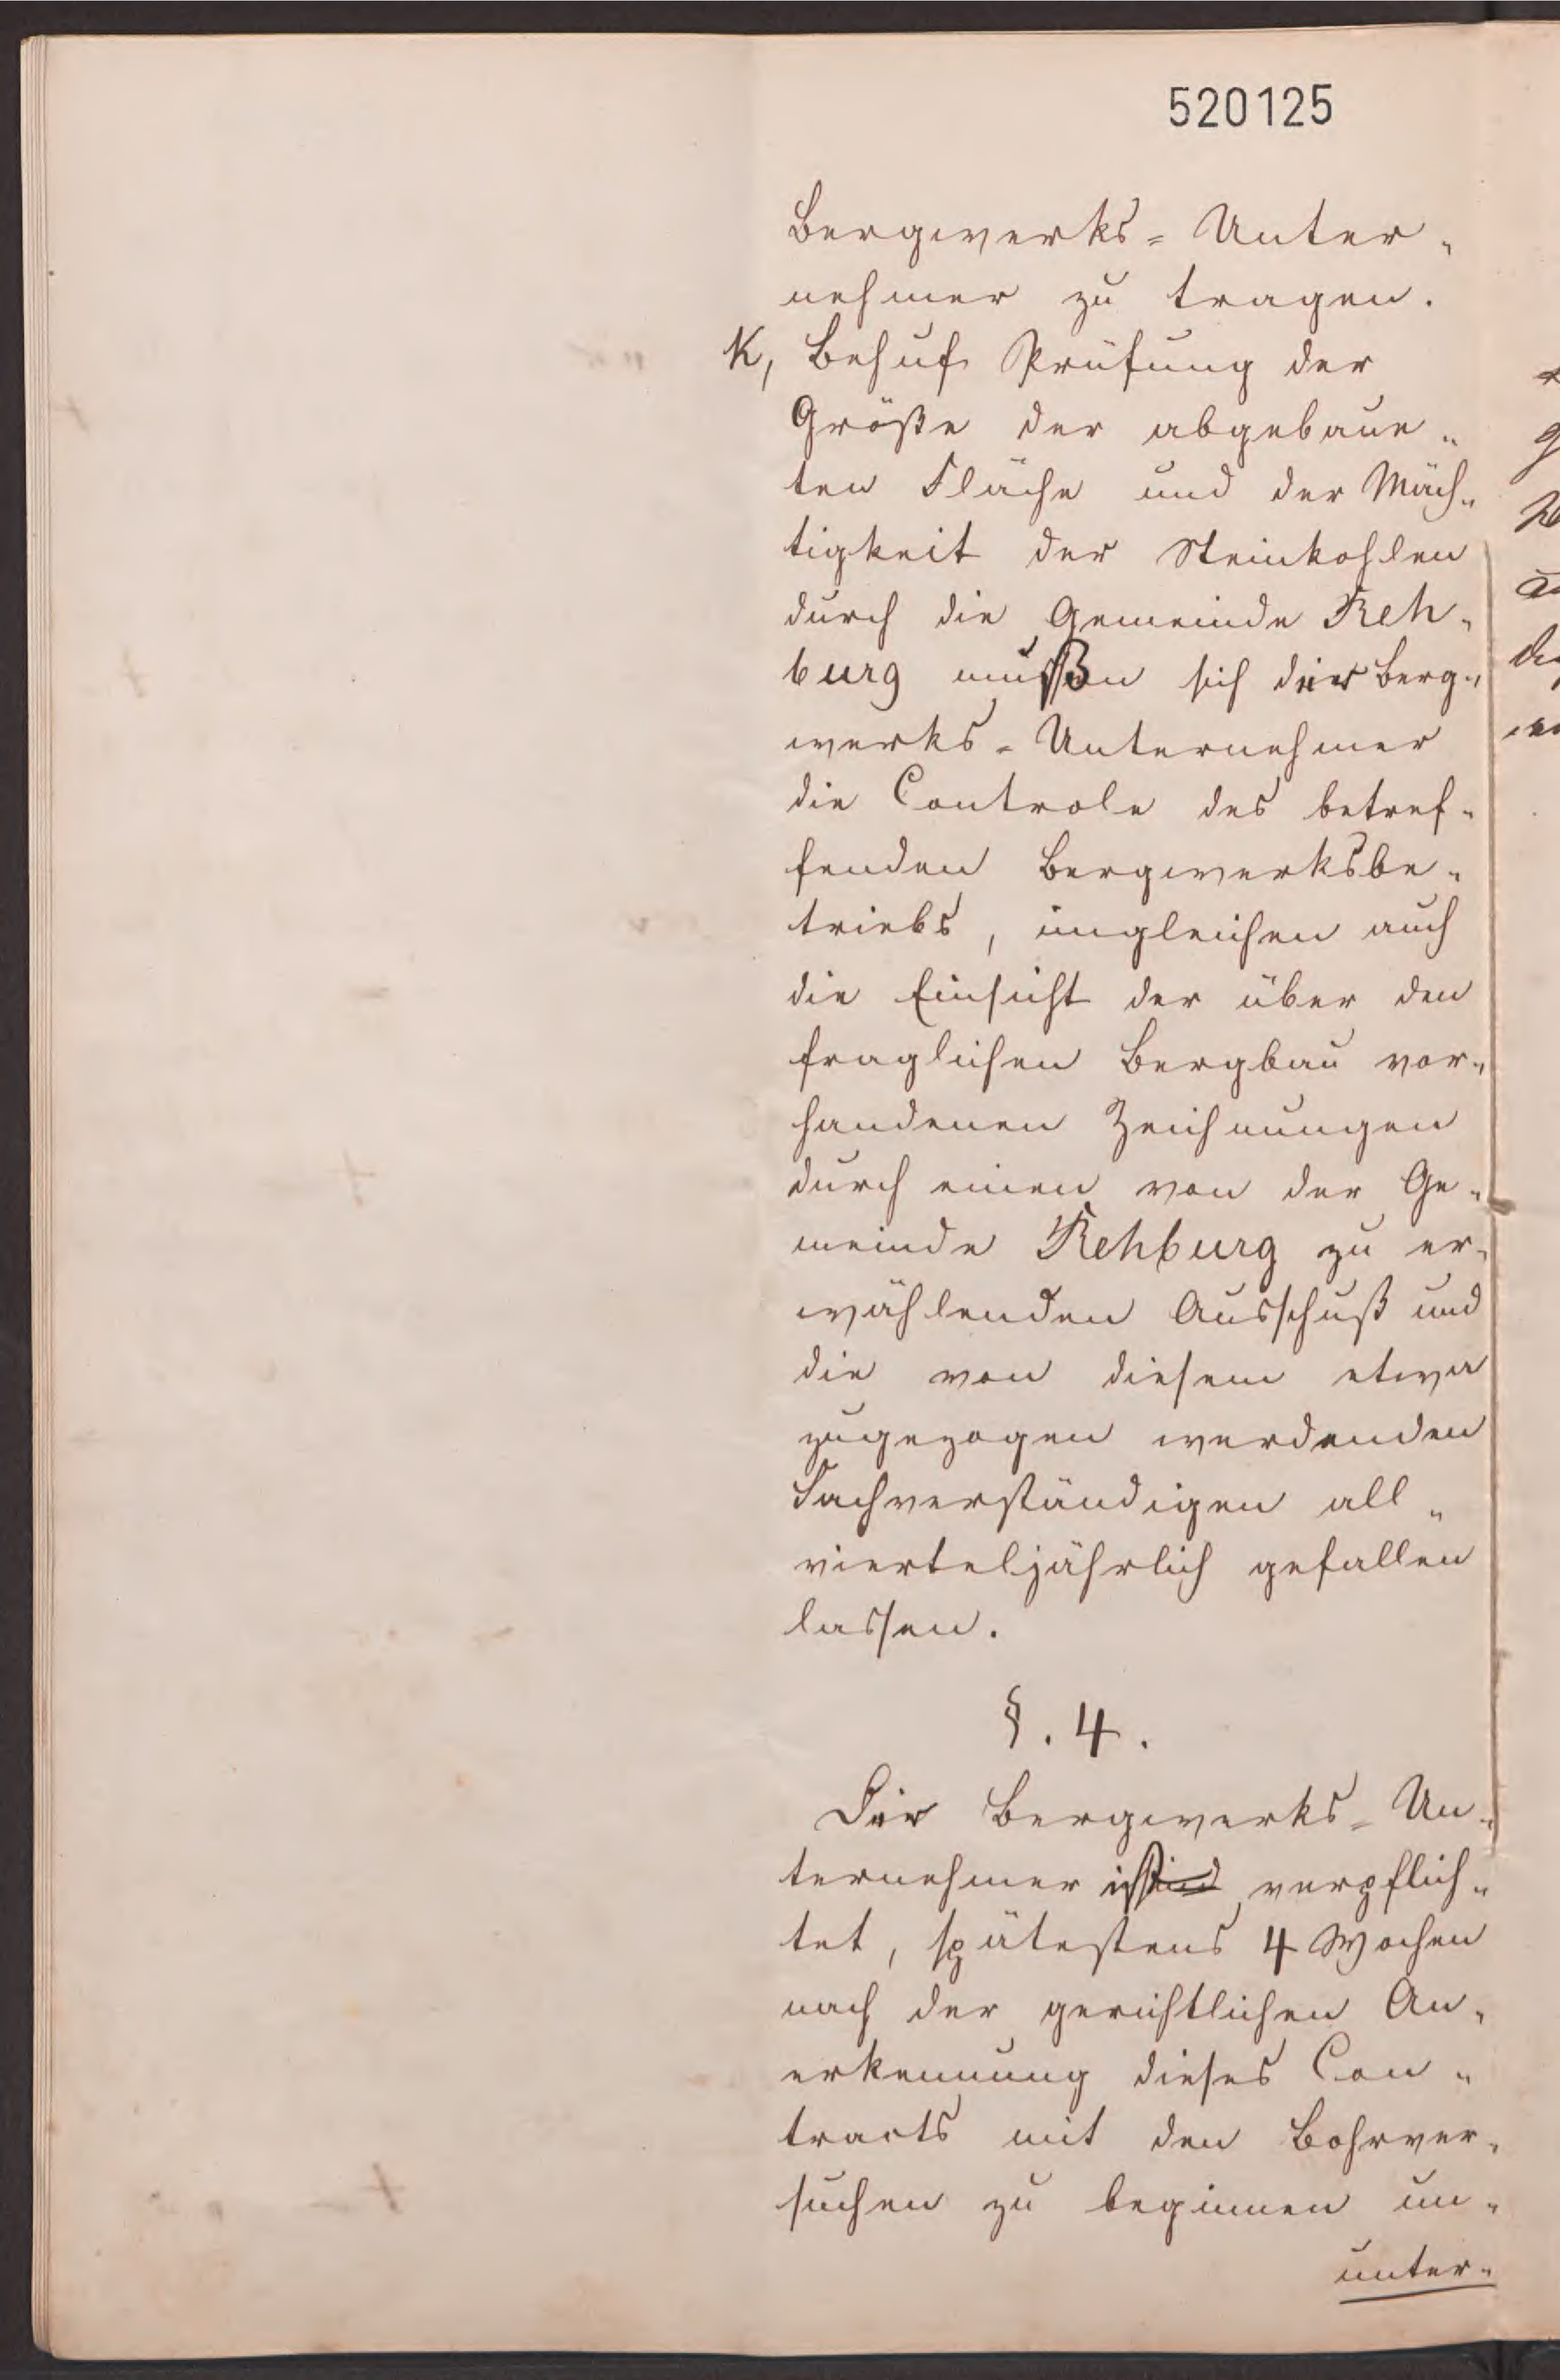 520125
Bergwerks-Unter-
nehmer zu tragen.
K, Behuf Prüfung der
Größe der abgebaue-
ten Fläche und der Mäch-
tigkeit der Steinkohlen
durch die Gemeinde Reh-
burg muß sich der Berg-
werks-Unternehmer
die Controle des betref-
fenden Bergwerksbe-
triebs, imgleichen auch
die Einsicht der über den
fraglichen Bergbau vor-
handenen Zeichnungen
durch einen von der Ge-
meinde Rehburg zu er-
wählenden Ausschuß und
die von diesem etwa
zugezogen werdenden
Sachverständigen all-
vierteljährlich gefallen
lassen.
§. 4.
Der Bergwerks-Un-
ternehmer ist verpflich-
tet, spätestens 4 Wochen
nach der gerichtlichen An-
erkennung dieses Con-
tracts mit den Bohrver-
suchen zu beginnen un-
unter-